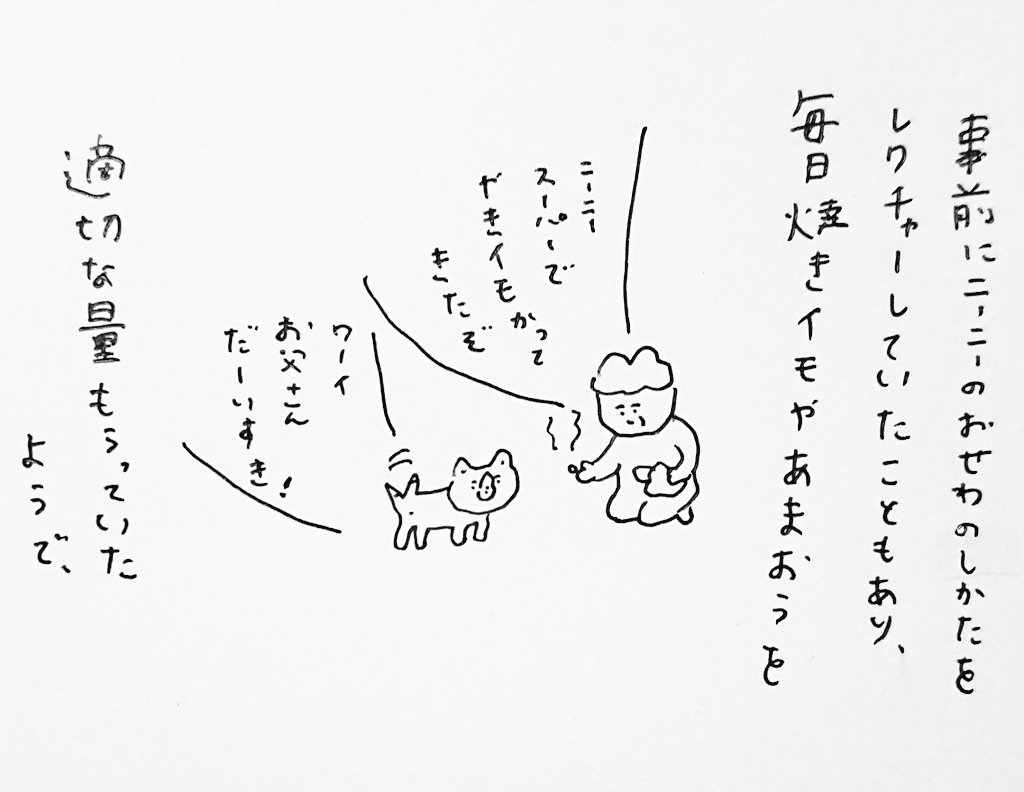 事前にニーニーのおせわのしかたを
レクチャーしていたこともあり、
毎日焼きイモやあまおうを
ニーニー
スーパーで
やきイモかって
きたぞ
ワーイ
お父さん
だーいすき!
適切な量もらっていた
ようで、